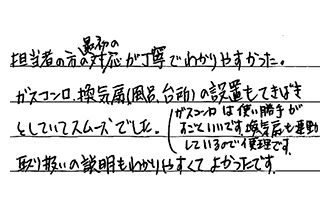 担当者の方の最初の対応が丁寧でわかりやすかった。
ガスコンロ、換気扇(風呂、台所)の設置もてきぱき
としていてスムーズでした。
(ガスコンロは使い勝手が
すごくいいです。換気扇も連動
しているので便利です。
取り扱いの説明もわかりやすくてよかったです。